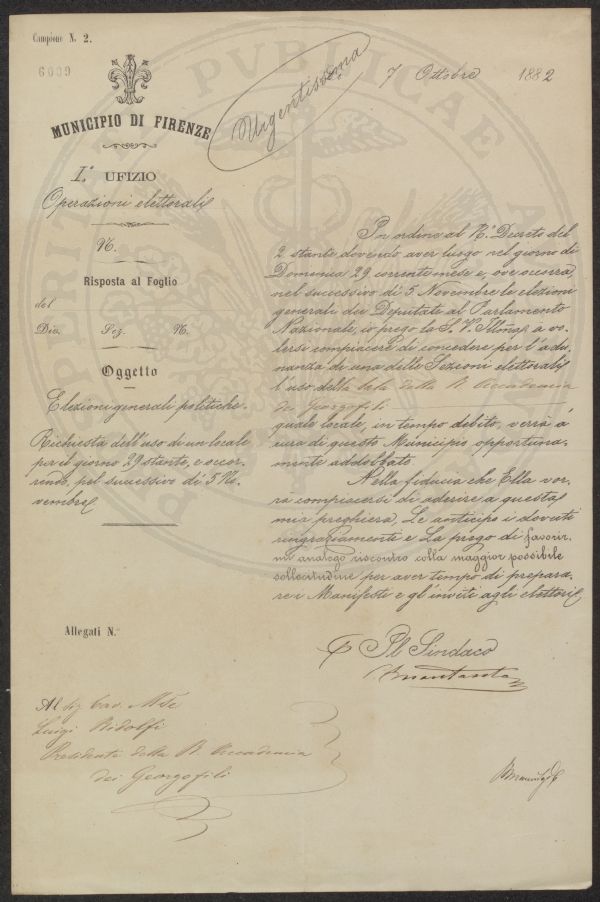 Campione N. 2.
6009
MUNICIPIO DI FIRENZE
Urgentissima
7 Ottobre 1882
I.º UFIZIO
Operazioni elettorali
N.
Risposta al Foglio
del
Div. Sez. N.
Oggetto
Elezioni generali politiche.
Richiesta dell'uso di un locale
per il giorno 29 stante, e occor-
rendo, pel successivo dì 5 No-
vembre
In ordine al R.º Decreto del
2 stante dovendo aver luogo nel giorno di
Domenica 29 corrente mese e, ove occorra
nel successivo dì 5 Novembre le elezioni
generali dei Deputati al Parlamento
Nazionale, io prego la S. V. Illma a vo-
lersi compiacere di concedere per l'adu-
nanza di una delle Sezioni elettorali
l'uso della Sala della R. Accademia
dei Georgofili
quale locale, in tempo debito, verrà a
cura di questo Municipio opportuna-
mente addobbato.
Nella fiducia che Ella vor-
rà compiacersi di aderire a questa
mia preghiera, Le anticipo i dovuti
ringraziamenti e La prego di favorir-
mi analogo riscontro colla maggior possibile
sollecitudine per aver tempo di prepara-
re i Manifesti e gl'inviti agli elettori
Allegati N.
Il Sindaco
Al Sig. Cav. Mse
Luigi Ridolfi
Presidente della R. Accademia
dei Georgofili
PROSPERITATI PUBLICAE